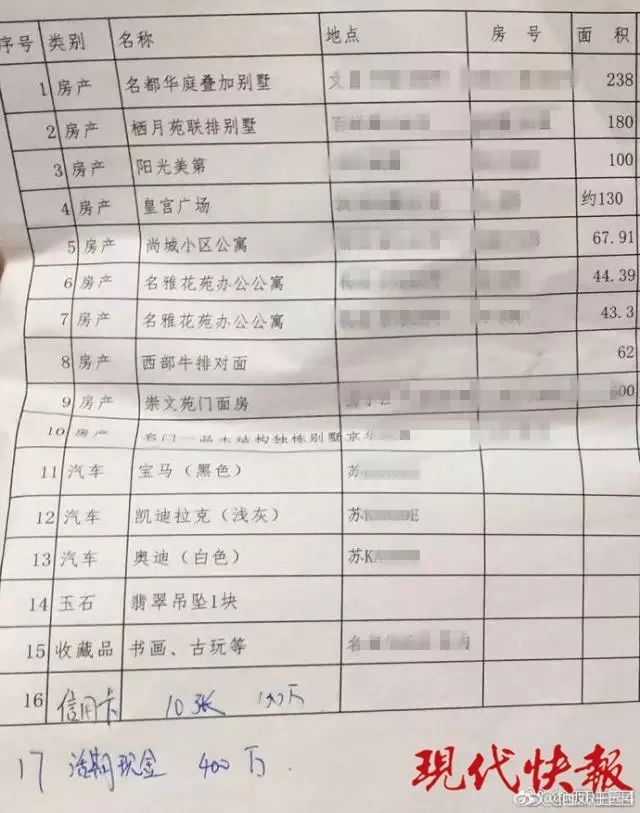 序号 类别 名称 地点 房号 面积
1 房产 名都华庭叠加别墅 238
2 房产 栖月苑联排别墅 180
3 房产 阳光美第 100
4 房产 皇宫广场 约130
5 房产 尚城小区公寓 67.91
6 房产 名雅花苑办公公寓 44.39
7 房产 名雅花苑办公公寓 43.3
8 房产 西部牛排对面 62
9 房产 崇文苑门面房 00
10 房产 名门一品木结构独栋别墅京华
11 汽车 宝马(黑色) 苏K
12 汽车 凯迪拉克(浅灰) 苏K E
13 汽车 奥迪(白色) 苏KA
14 玉石 翡翠吊坠1块
15 收藏品 书画、古玩等
16 信用卡 10张 万
17 活期现金 400万
现代快報